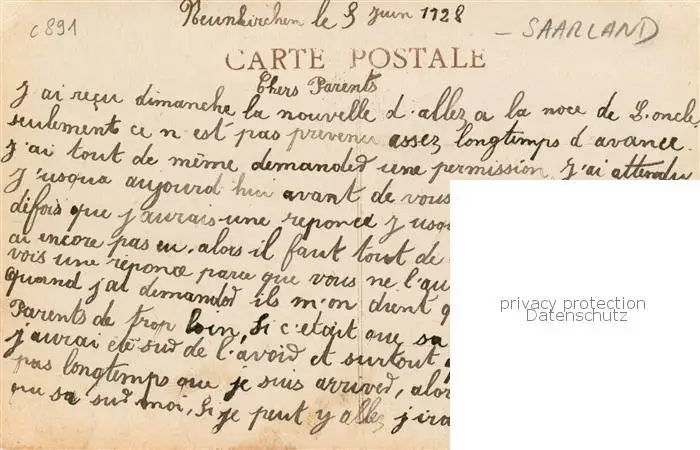 Neunkirchen le 3 Juin 1928
c891
- SAARLAND
CARTE POSTALE
Chers Parents
J'ai reçu dimanche la nouvelle d'allez a la noce de L.oncle,
seulement ce n est pas prevenu assez longtemps d avance.
J'ai tout de même demandéd une permission. J'ai attendu
J'usqua aujourd hui avant de vous
défois que j'aurais une reponce J usqu
ai encore pas eu. alors il faut tout de
vois une réponce parce que vous ne l'au
quand j'ai demandéd ils m'on dient q
Parents de trop loin, Si c'etait que sa
j'aurai été sud de l'avoid et surtout
pas longtemps que je suis arrivéd, alor
que sa sud moi, Si je peut y allez j'ira
privacy protection
Datenschutz